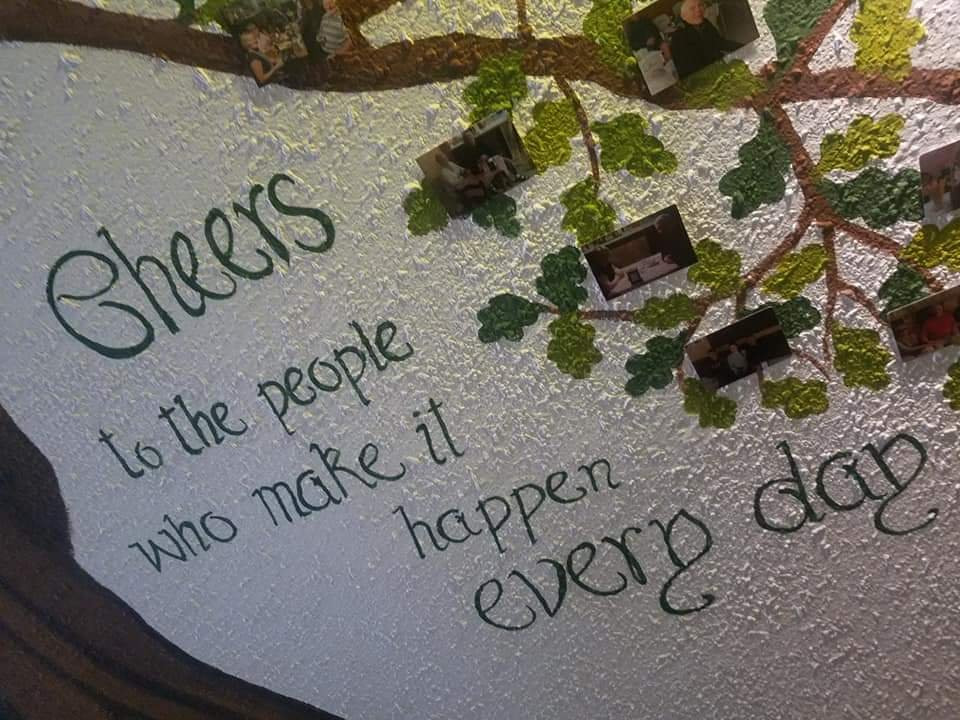 Cheers
to the people
who make it
happen
every day